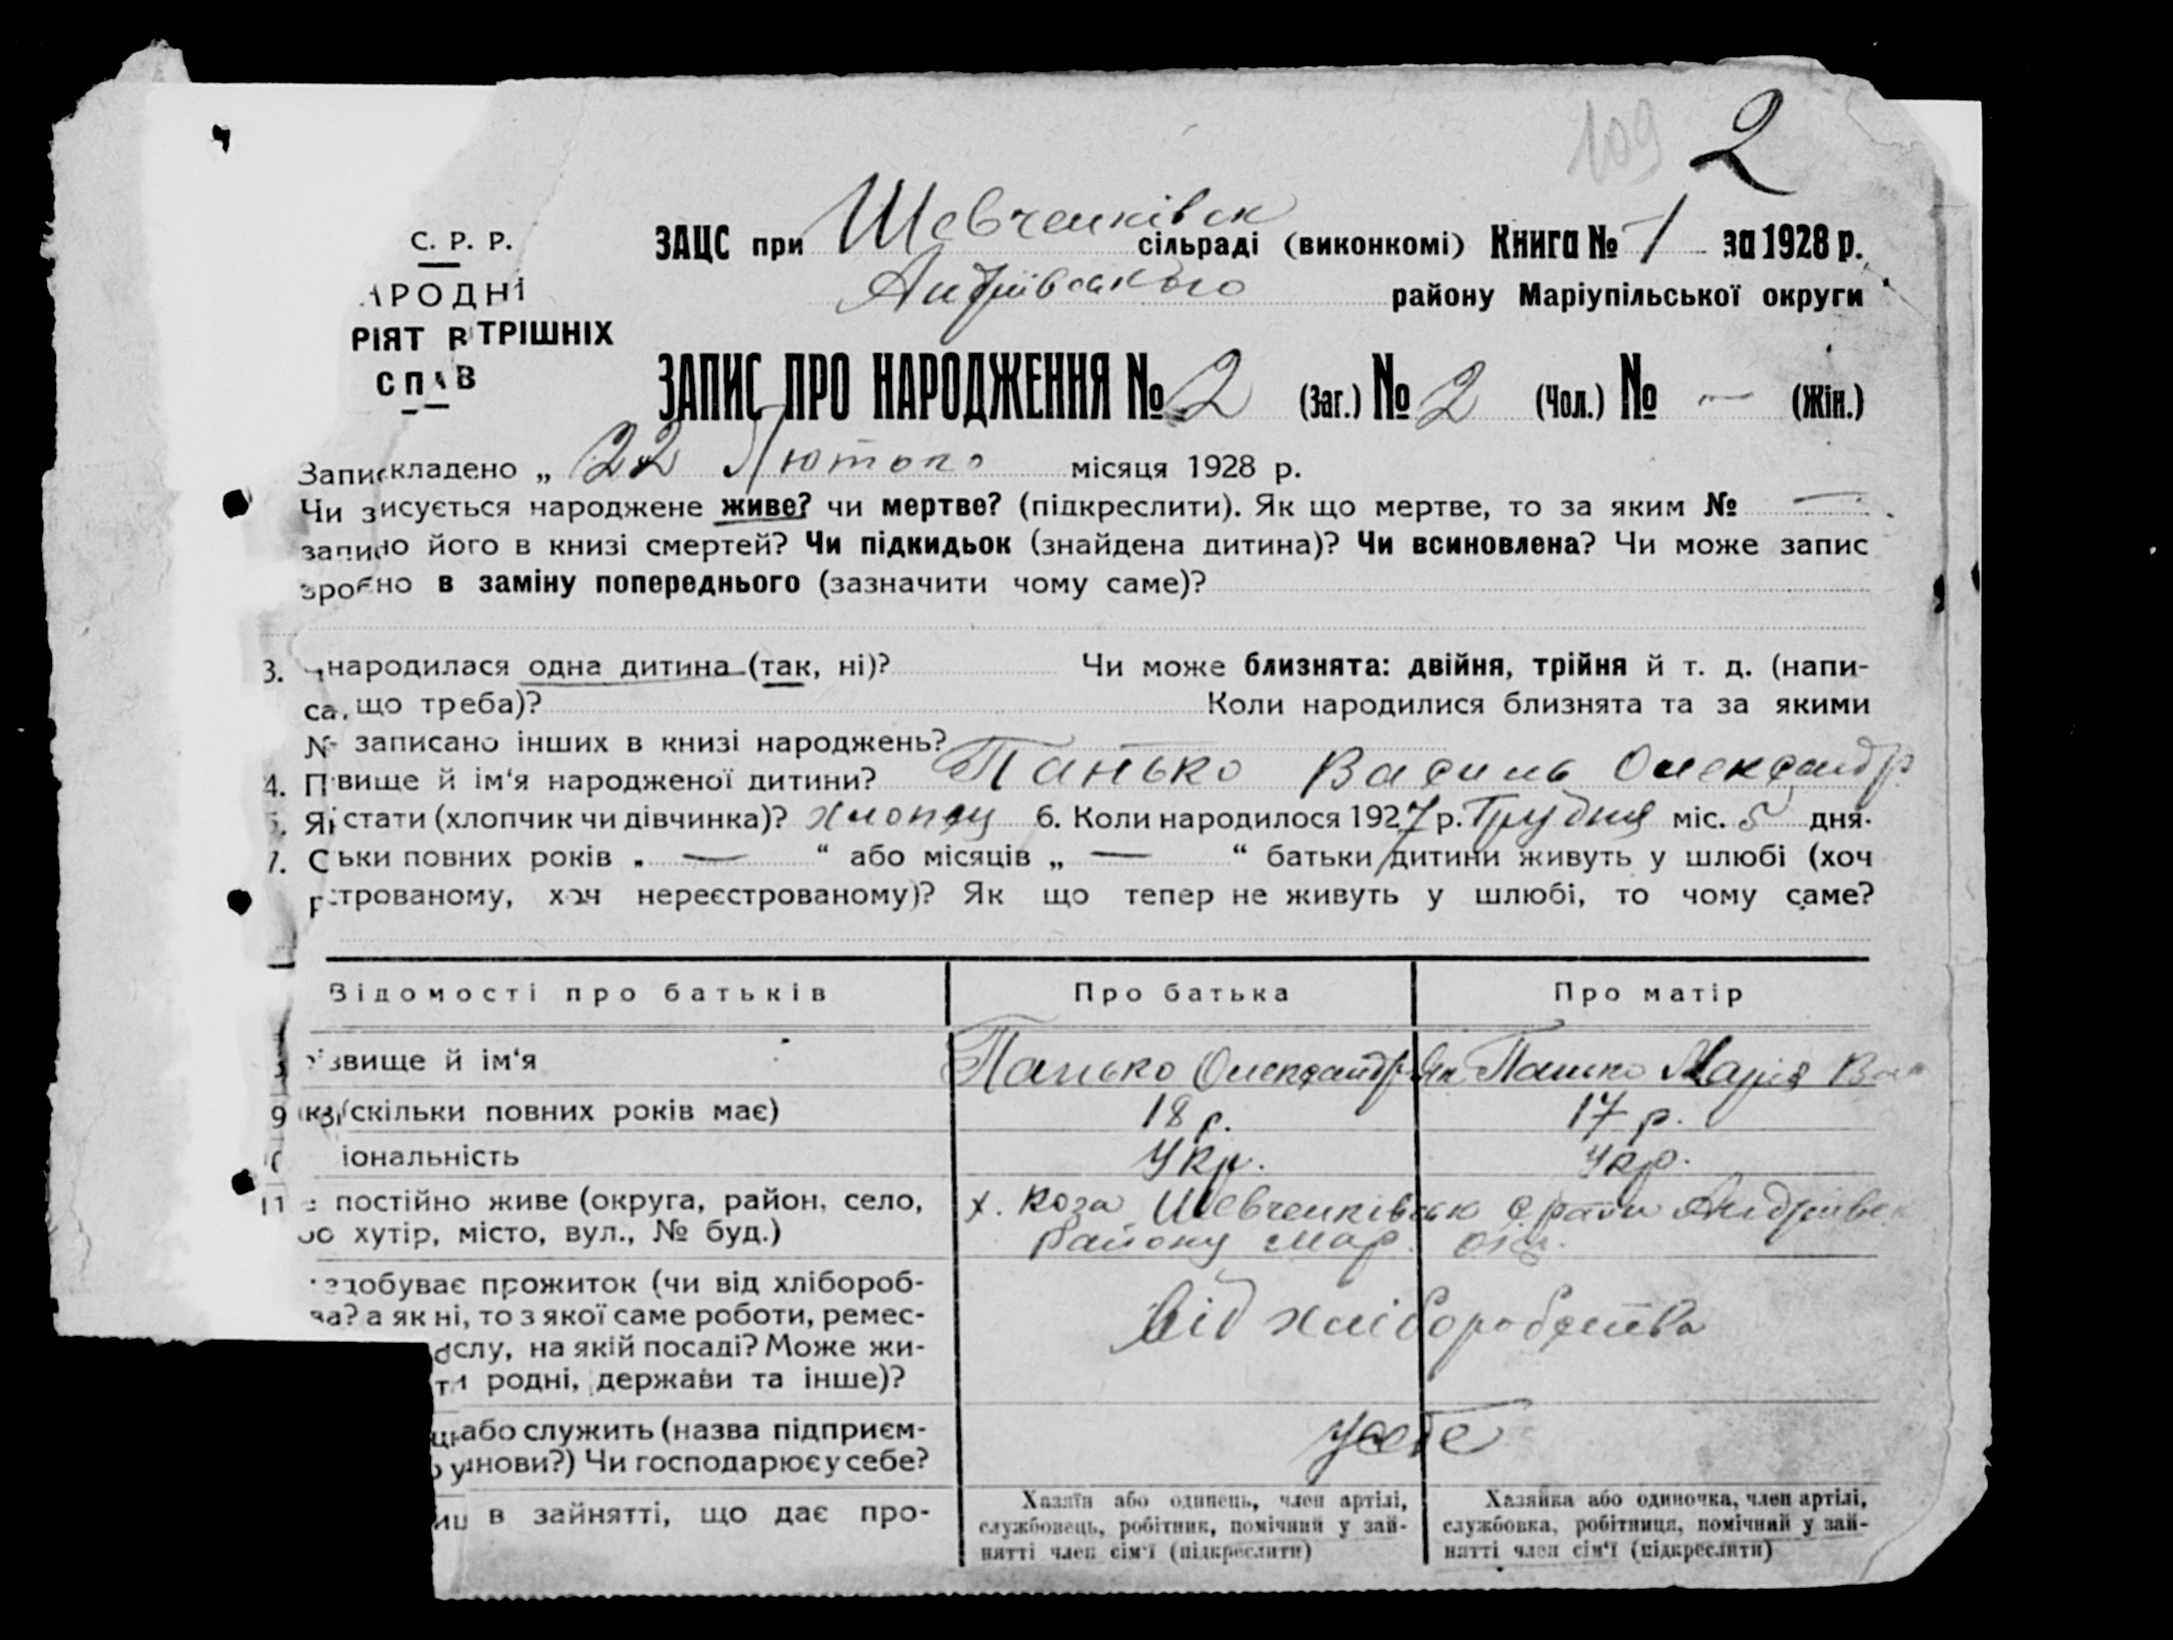 109 2
С. Р. Р. ЗАЦС при Шевченківск сільраді (виконкомі) Книга № 1 за 1928 р.
АРОДНІ Андріївського району Маріупільської округи
РІЯТ В ТРІШНІХ
СП В
ЗАПИС ПРО НАРОДЖЕННЯ № 2 (Заг.) № 2 (Чол.) № — (Жін.)
Запис кладено „ 22 Лютого місяця 1928 р.
Чи з исується народжене живе? чи мертве? (підкреслити). Як що мертве, то за яким № —
запи но його в книзі смертей? Чи підкидьок (знайдена дитина)? Чи всиновлена? Чи може запис
зро но в заміну попереднього (зазначити чому саме)?
3. народилася одна дитина (так, ні)? Чи може близнята: двійня, трійня й т. д. (напи-
са, що треба)? Коли народилися близнята та за якими
№ записано інших в книзі народжень? —
4. П вище й ім‘я народженої дитини? Панько Василь Олександр
5. Як стати (хлопчик чи дівчинка)? хлопец 6. Коли народилося 1927 р. Грудня міс. 5 дня.
7. С ьки повних років „ — “ або місяців „ — “ батьки дитини живуть у шлюбі (хоч
р трованому, хоч нереєстрованому)? Як що тепер не живуть у шлюбі, то чому саме?
Відомості про батьків Про батька Про матір
звище й ім‘я Панько Олександр Панько Марія
9 (скільки повних років має) 18 р. 17 р.
іональність Укр. Укр.
11 постійно живе (округа, район, село, х. Роза Шевченківськ с.ради Андріївск
бо хутір, місто, вул., № буд.) Району Мар. окр.
здобуває прожиток (чи від хлібороб-
ва? а як ні, то з якої саме роботи, ремес- від хліборобства
слу, на якій посаді? Може жи-
ти родні, держави та інше)?
або служить (назва підприєм- у себе
у нови?) Чи господарює у себе?
в зайнятті, що дає про- Хазяїн або одинець, член артілі, Хазяйка або одиночка, член артілі,
службовець, робітник, помічний у зай- службовка, робітниця, помічний у зай-
нятті член сім‘ї (підкреслити) нятті член сім‘ї (підкреслити)